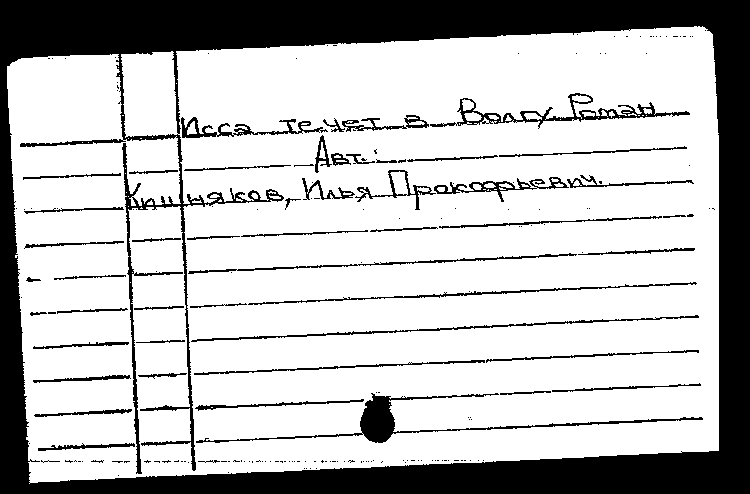 Исса течет в Волгу. Роман
Авт.:
Кишняков, Илья Прокофьевич.